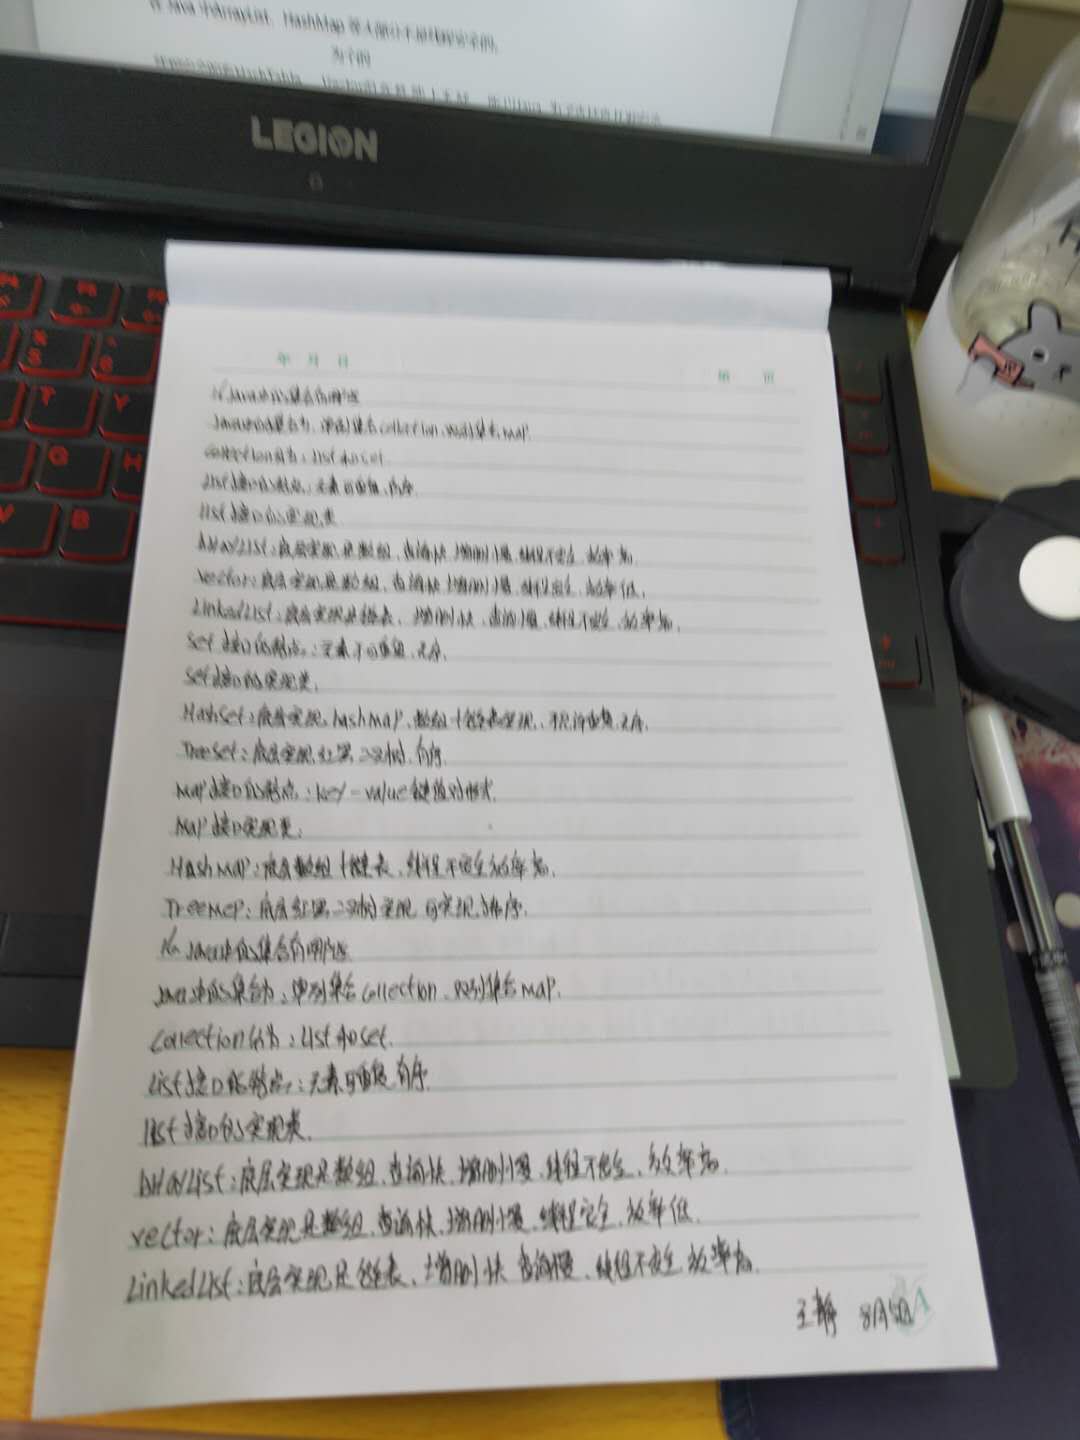 在 Java 中ArrayList、HashMap 等大部分不是线程安全的。
LEGION
年 月 日
第 页
1、Java中的集合有哪些
Java中的集合为：单列集合collection、双列集合map.
collection分为：list和set.
list接口的特点：元素可重复,有序.
list接口的实现类
ArrayList：底层实现是数组、查询快、增删慢、线程不安全、效率高.
vector：底层实现是数组、查询快、增删慢、线程安全、效率低.
LinkedList：底层实现是链表、增删快、查询慢、线程不安全、效率高.
set接口的特点：元素不可重复,无序.
set接口的实现类.
HashSet：底层实现、hashmap、数组+链表实现、不允许重复,无序.
TreeSet：底层实现红黑二叉树、有序.
map接口的特点：key-value键值对形式.
Map接口实现类：
HashMap：底层数组+链表、线程不安全,效率高.
TreeMap：底层红黑二叉树实现 可实现排序.
1、Java中的集合有哪些
Java中的集合为：单列集合collection、双列集合map.
collection分为：list和set.
list接口的特点：元素可重复,有序.
list接口的实现类.
ArrayList：底层实现是数组、查询快、增删慢、线程不安全、效率高.
vector：底层实现是数组、查询快、增删慢、线程安全、效率低.
LinkedList：底层实现是链表、增删快、查询慢、线程不安全,效率高.
王静 8月5日